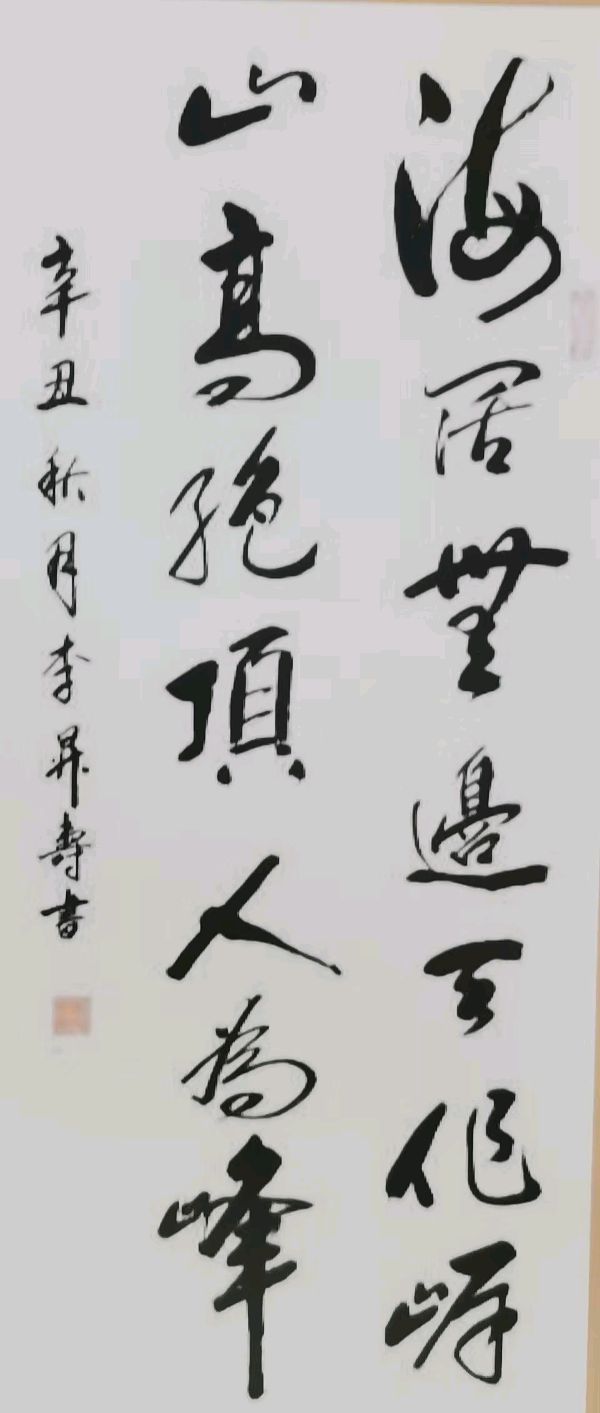 海闊無邊天作岸
山高絕頂人為峰
辛丑秋月李昇壽書